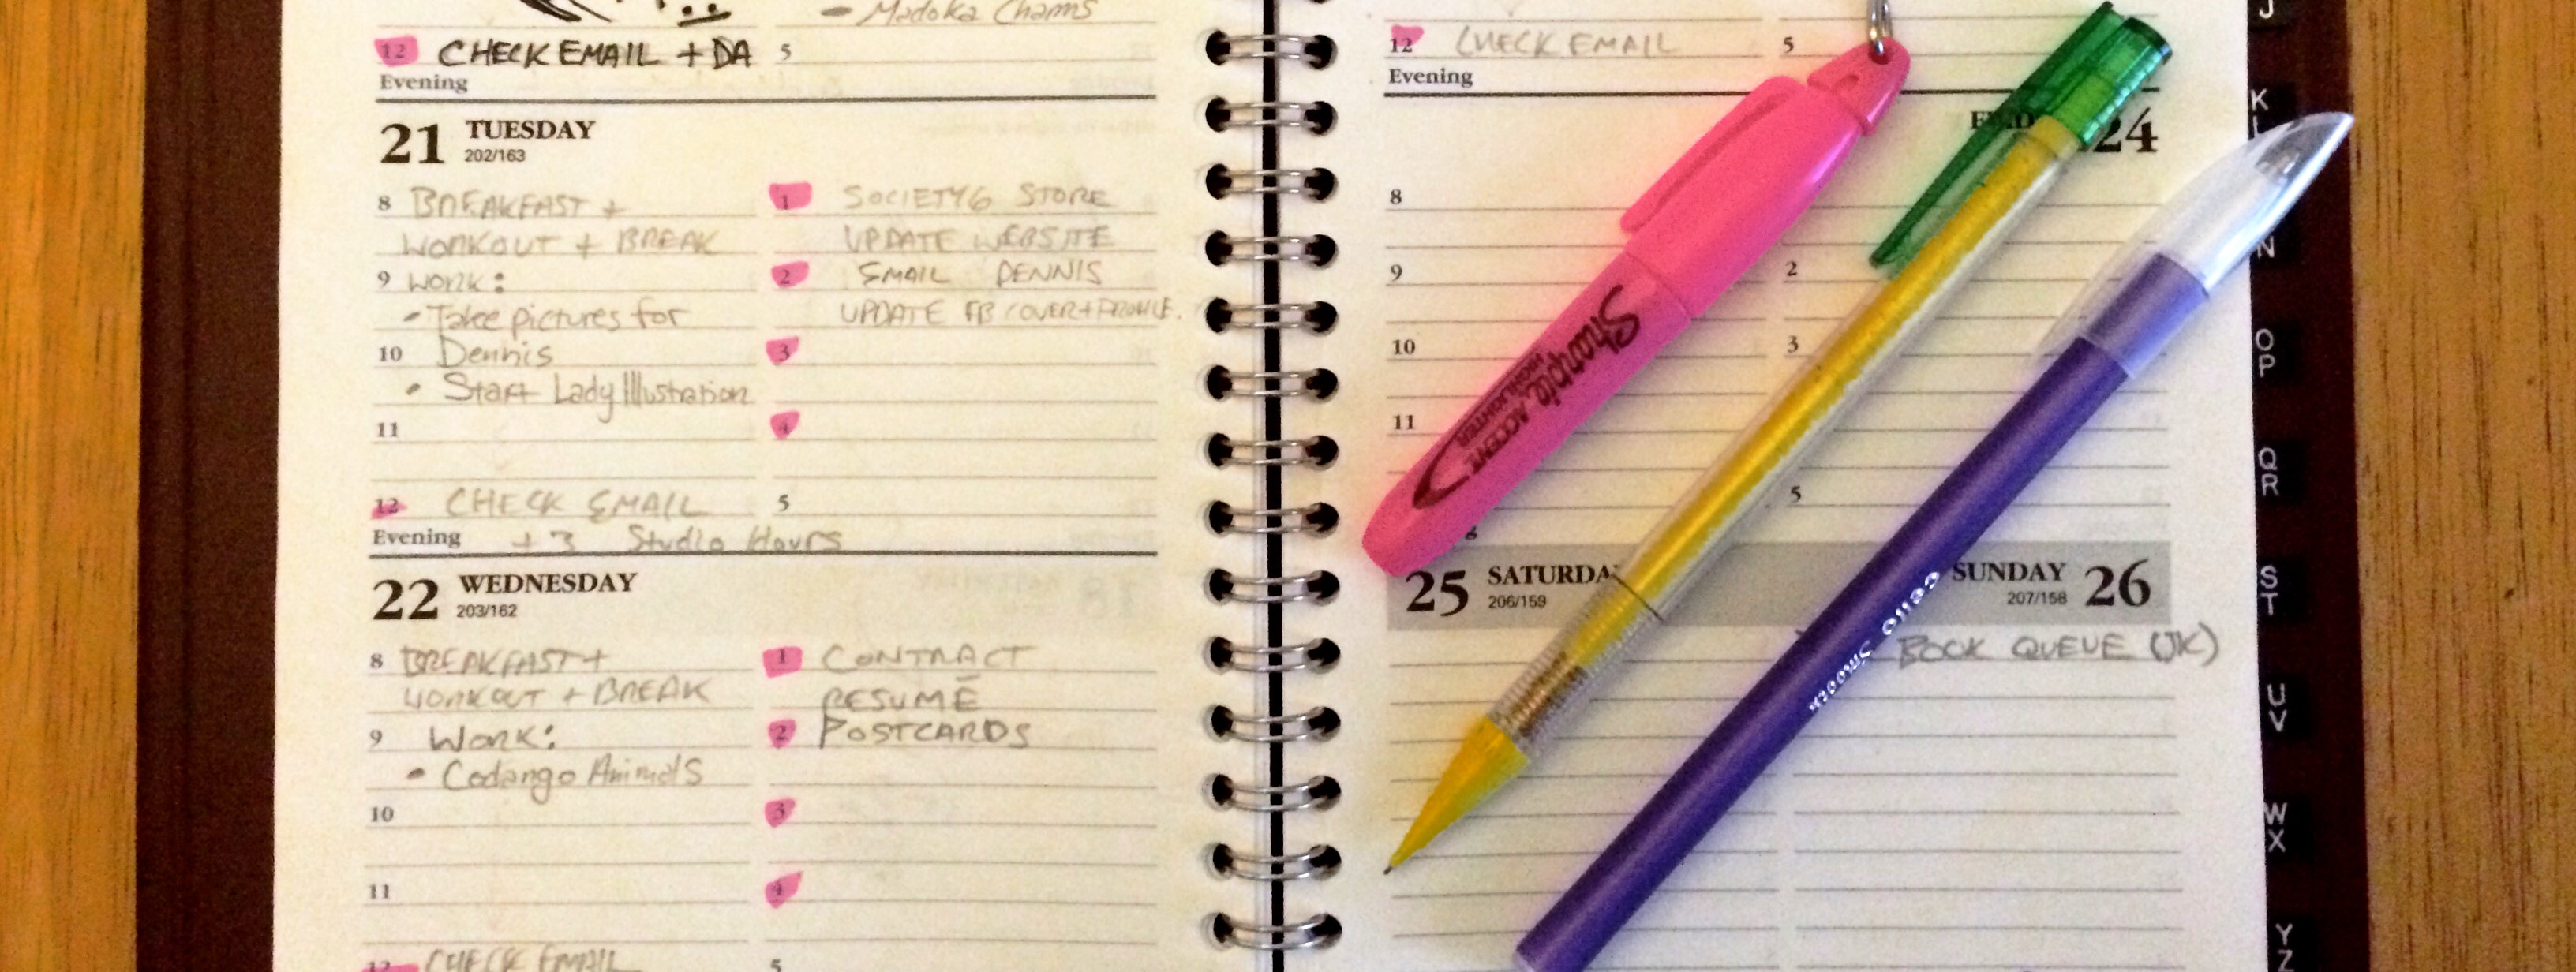 • Madoka Charms
12 CHECK EMAIL + DA 5
Evening
21 TUESDAY
202/163
8 BREAKFAST + 1 SOCIETY6 STORE
WORKOUT + BREAK UPDATE WEBSITE
9 WORK: 2 EMAIL DENNIS
• Take pictures for UPDATE FB COVER + PROFILE.
10 Dennis 3
• Start Lady Illustration
11 4
12 CHECK EMAIL 5
Evening + 3 Studio Hours
22 WEDNESDAY
203/162
8 BREAKFAST + 1 CONTRACT
WORKOUT + BREAK RESUMÉ
9 WORK: 2 POSTCARDS
• Codango Animals
10 3
11 4
12 CHECK EMAIL 5
12 CHECK EMAIL 5
Evening
24
8
9 2
10 3
11
5
25 SATURDAY SUNDAY 26
206/159 207/158
BOOK QUEUE (JK)
Sharpie ACCENT
HIGHLIGHTER
cello
J
K
L
N
O
P
Q
R
S
T
U
V
W
X
Y
Z